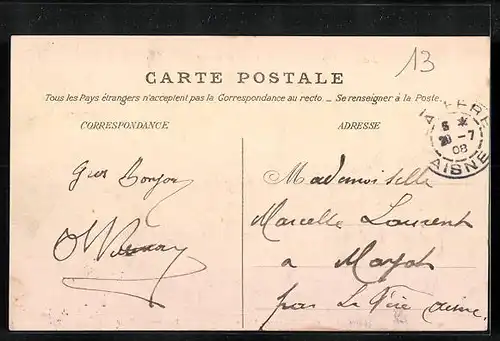 13
CARTE POSTALE
Tous les Pays étrangers n'acceptent pas la Correspondance au recto. _ Se renseigner à la Poste.
CORRESPONDANCE
ADRESSE
LA FERE
5 *
20 -7
08
AISNE
Bonjour
Mademoiselle
Marcelle Laurent
a Mayot
par La Fère Aisne.